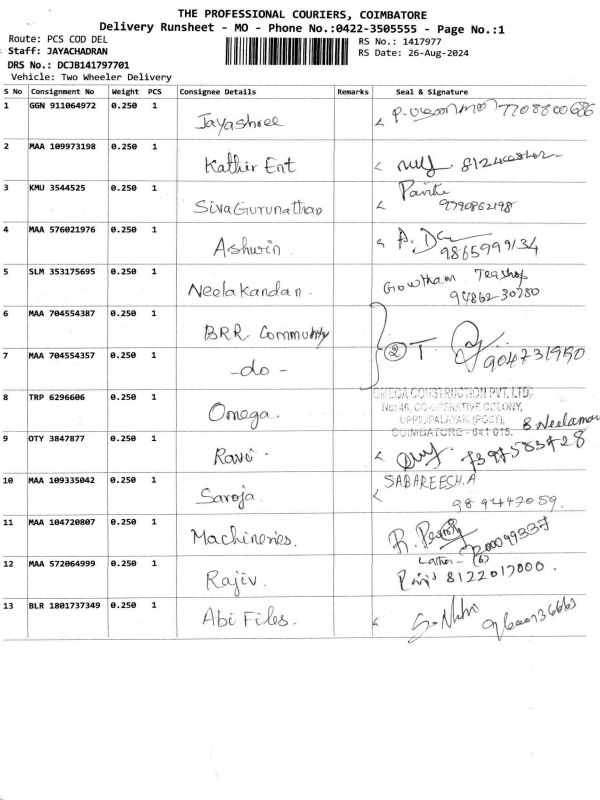 THE PROFESSIONAL COURIERS, COIMBATORE
Delivery Runsheet - MO - Phone No.:0422-3505555 - Page No.:1
Route: PCS COD DEL
RS No.: 1417977
Staff: JAYACHADRAN
RS Date: 26-Aug-2024
DRS No.: DCJB141797701
Vehicle: Two Wheeler Delivery
S No Consignment No Weight PCS Consignee Details Remarks Seal & Signature
1 GGN 911064972 0.250 1
Jayashree 7708800686
2 MAA 109973198 0.250 1
Kathir Ent
3 KMU 3544525 0.250 1
SivaGurunathan 9790862198
4 MAA 576021976 0.250 1
Ashwin. 9865999134
5 SLM 353175695 0.250 1
Neelakandan. Gowtham Teashop
94862-30780
6 MAA 704554387 0.250 1
BRR. Community
7 MAA 704554357 0.250 1
-do- 2 T. 904731950
8 TRP 6296606 0.250 1 OMEGA CONSTRUCTION PVT. LTD,
Omega. No: 46, CO-OPERATIVE COLONY,
UPPILIPALAYAM (POST),
COIMBATORE - 641 015.
9 OTY 3847877 0.250 1
Ravi. 7397583728
10 MAA 109335042 0.250 1 SABAREESH.A
Saroja 98 9447059.
11 MAA 104720807 0.250 1
Machineries.
12 MAA 572064999 0.250 1
Rajiv. 8122017000.
13 BLR 1801737349 0.250 1
Abi Files.